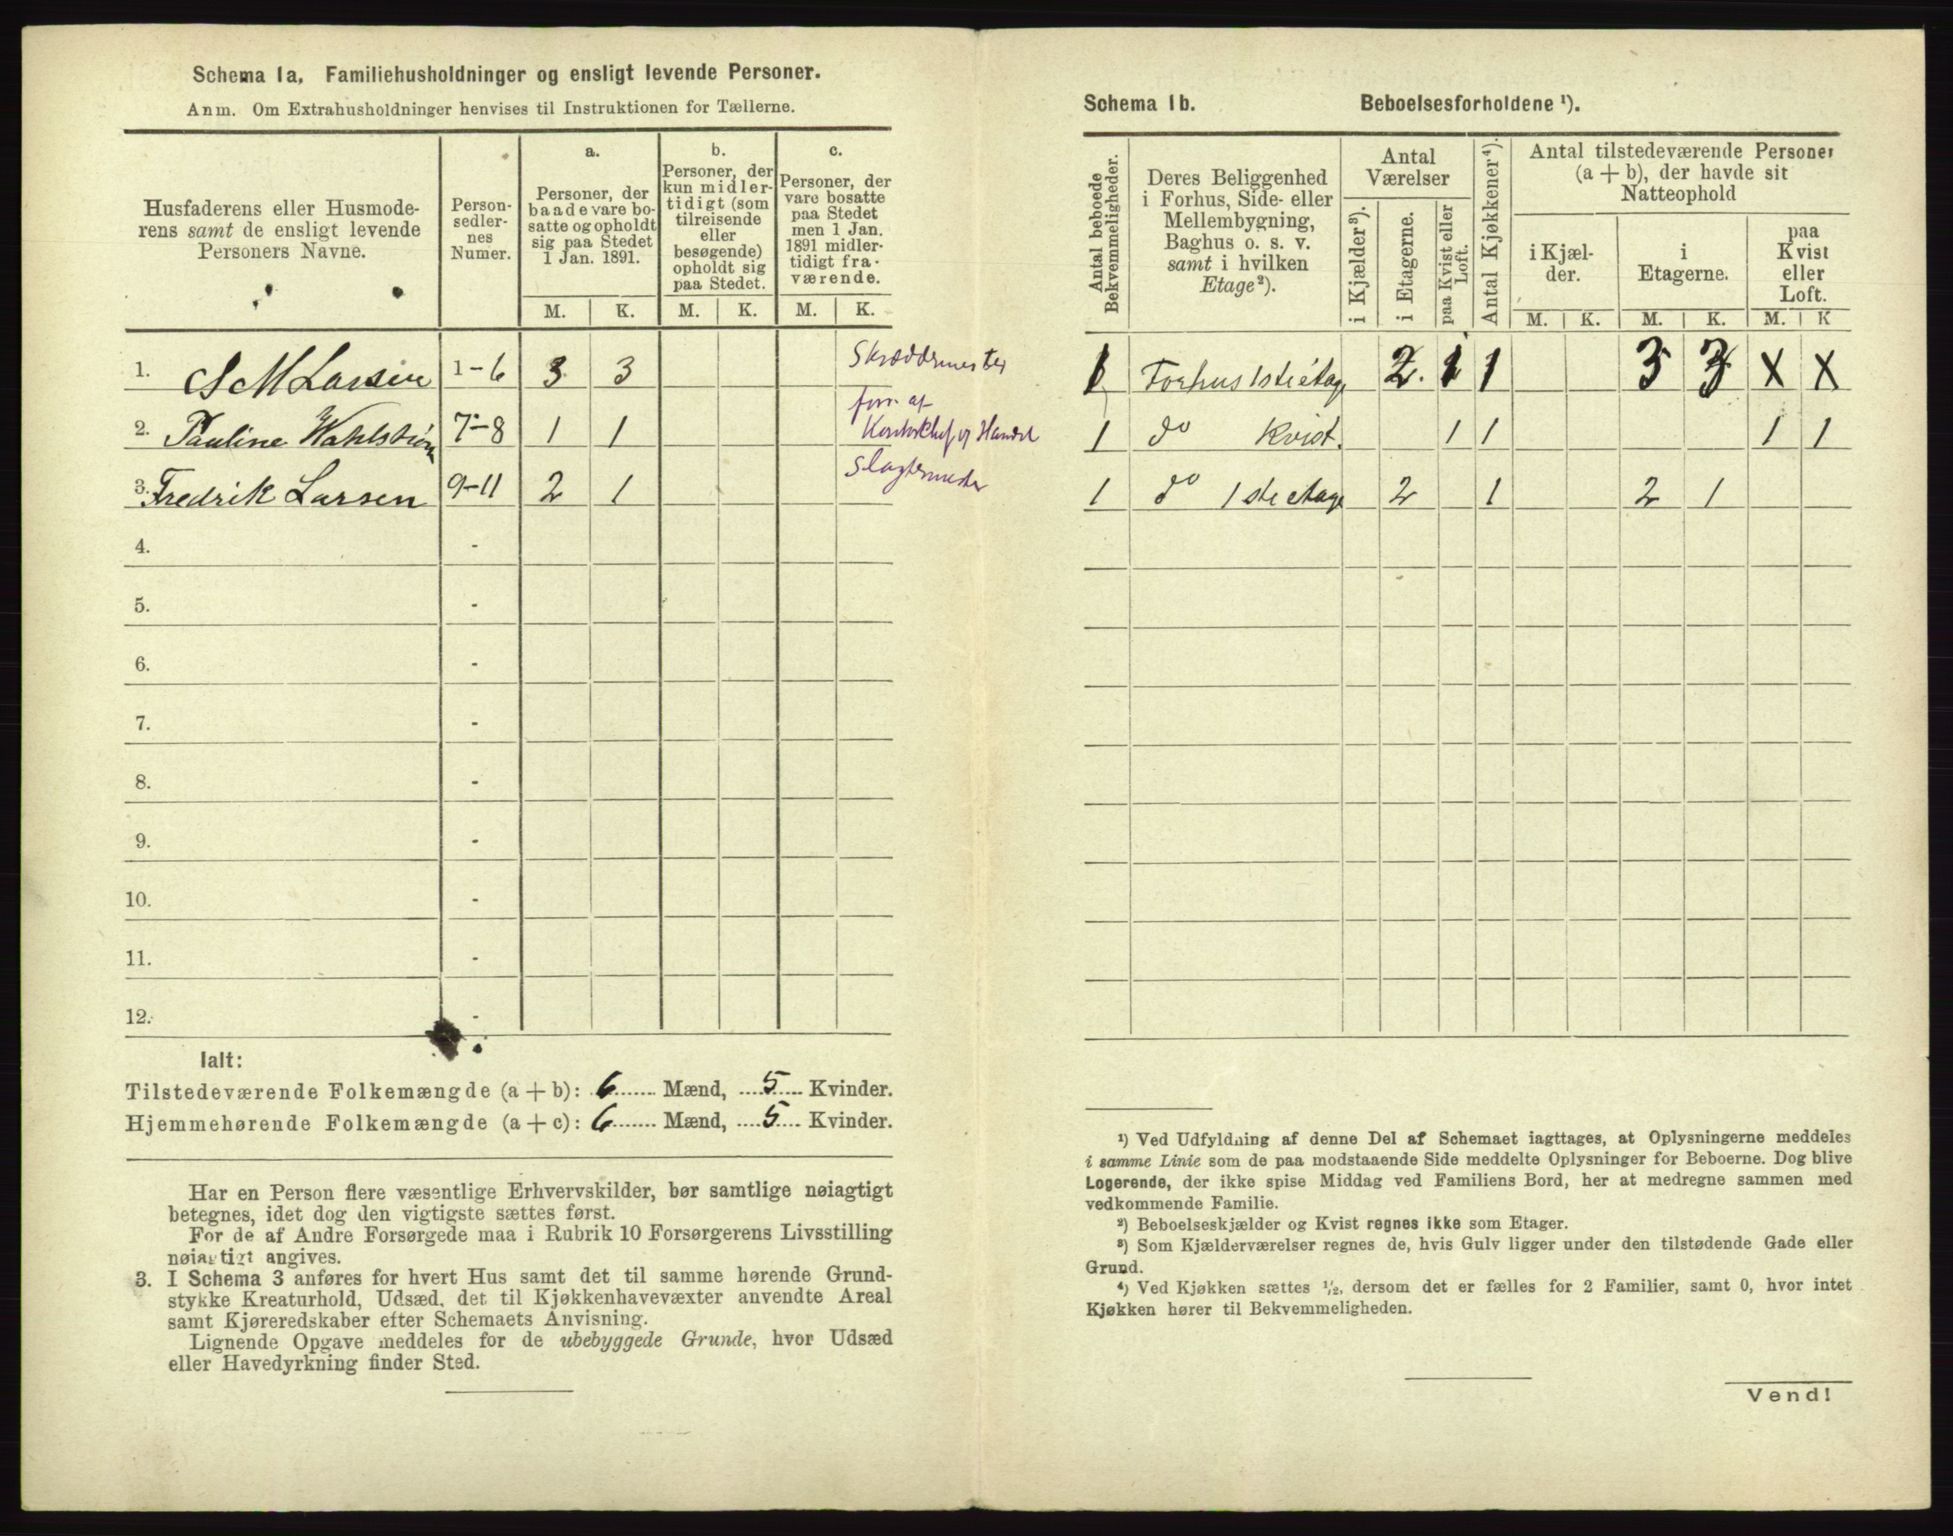 Schema 1a, Familiehusholdninger og ensligt levende Personer.
Anm. Om Extrahusholdninger henvises til Instruktionen for Tællerne.
Husfaderens eller Husmode-
rens samt de ensligt levende
Personers Navne.
Person-
sedler-
nes
Numer.
a.
Personer, der
baade vare bo-
satte og opholdt
sig paa Stedet
1 Jan. 1891.
b.
Personer, der
kun midler-
tidigt (som
tilreisende
eller
besøgende)
opholdt sig
paa Stedet.
c.
Personer, der
vare bosatte
paa Stedet
men 1 Jan.
1891 midler-
tidigt fra-
værende.
M. K. M. K. M. K.
1. S M Larsen 1-6 3 3 Skræddermester
2. Pauline Wahlstrøm 7-8 1 1 forr. af
Kontorchef og Handel
3. Fredrik Larsen 9-11 2 1 Slagtermester
4. -
5. -
6. -
7. -
8. -
9. -
10. -
11. -
12. -
Ialt:
Tilstedeværende Folkemængde (a + b): 6 Mænd, 5 Kvinder.
Hjemmehørende Folkemængde (a + c): 6 Mænd, 5 Kvinder.
Har en Person flere væsentlige Erhvervskilder, bør samtlige nøiagtigt
betegnes, idet dog den vigtigste sættes først.
For de af Andre Forsørgede maa i Rubrik 10 Forsørgerens Livsstilling
nøiagtigt angives.
3. I Schema 3 anføres for hvert Hus samt det til samme hørende Grund-
stykke Kreaturhold, Udsæd, det til Kjøkkenhavevæxter anvendte Areal
samt Kjøreredskaber efter Schemaets Anvisning.
Lignende Opgave meddeles for de ubebyggede Grunde, hvor Udsæd
eller Havedyrkning finder Sted.
Schema 1b. Beboelsesforholdene ¹).
Antal beboede
Bekvemmeligheder.
Deres Beliggenhed
i Forhus, Side- eller
Mellembygning,
Baghus o. s. v.
samt i hvilken
Etage²).
Antal
Værelser
i Kjælder ³).
i Etagerne.
paa Kvist eller
Loft.
Antal Kjøkkener ⁴).
Antal tilstedeværende Personer
(a + b), der havde sit
Natteophold
i Kjæl-
der.
i
Etagerne.
paa
Kvist
eller
Loft.
M. K. M. K. M. K
1 Forhus 1ste étage 2. 1 1 3 3 X X
1 do Kvist. 1 1 1 1
1 do 1ste etage 2 1 2 1
¹) Ved Udfyldning af denne Del af Schemaet iagttages, at Oplysningerne meddeles
i samme Linie som de paa modstaaende Side meddelte Oplysninger for Beboerne. Dog blive
Logerende, der ikke spise Middag ved Familiens Bord, her at medregne sammen med
vedkommende Familie.
²) Beboelseskjælder og Kvist regnes ikke som Etager.
³) Som Kjælderværelser regnes de, hvis Gulv ligger under den tilstødende Gade eller
Grund.
⁴) Ved Kjøkken sættes ½, dersom det er fælles for 2 Familier, samt 0, hvor intet
Kjøkken hører til Bekvemmeligheden.
Vend!